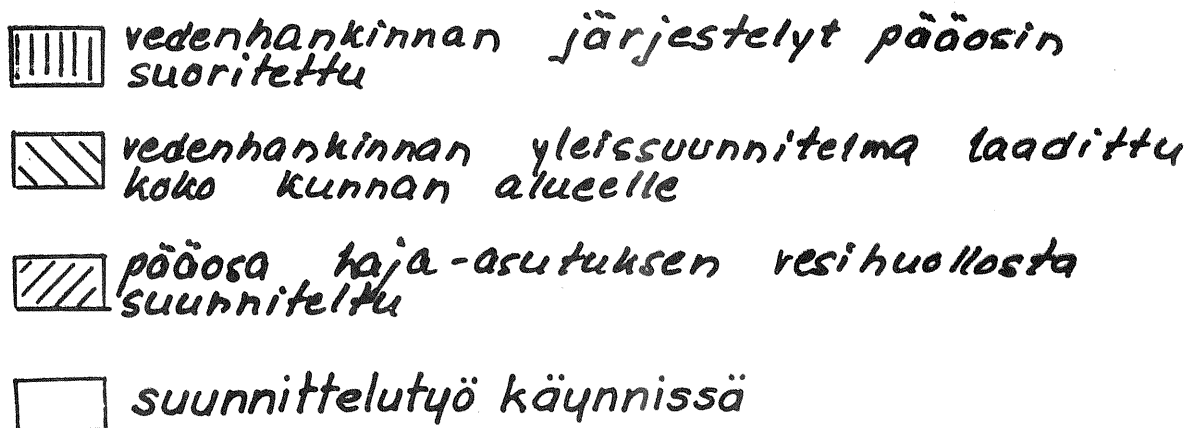 vedenhankinnan järjestelyt pääosin
suoritettu
vedenhankinnan yleissuunnitelma laadittu
koko kunnan alueelle
pääosa haja-asutuksen vesihuollosta
suunniteltu
suunnittelutyö käynnissä